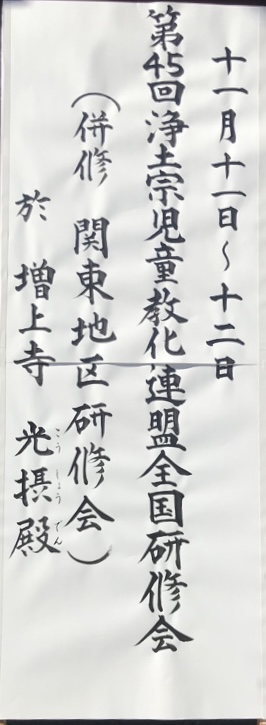 十一月十一日～十二日
第45回浄土宗児童教化連盟全国研修会
（併修 関東地区研修会）
於 増上寺 光摂殿
こうしょうでん